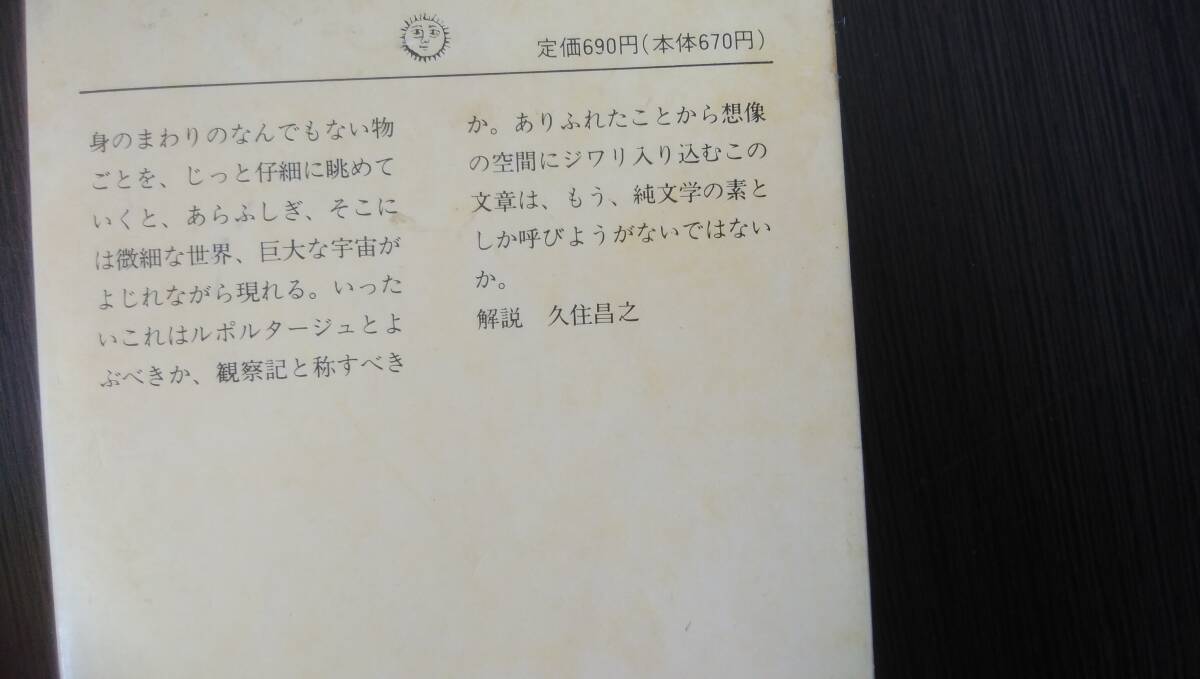 定価690円(本体670円)
身のまわりのなんでもない物
ごとを、じっと仔細に眺めて
いくと、あらふしぎ、そこに
は微細な世界、巨大な宇宙が
よじれながら現れる。いった
いこれはルポルタージュとよ
ぶべきか、観察記と称すべき
か。ありふれたことから想像
の空間にジワリ入り込むこの
文章は、もう、純文学の素と
しか呼びようがないではない
か。
解説　久住昌之